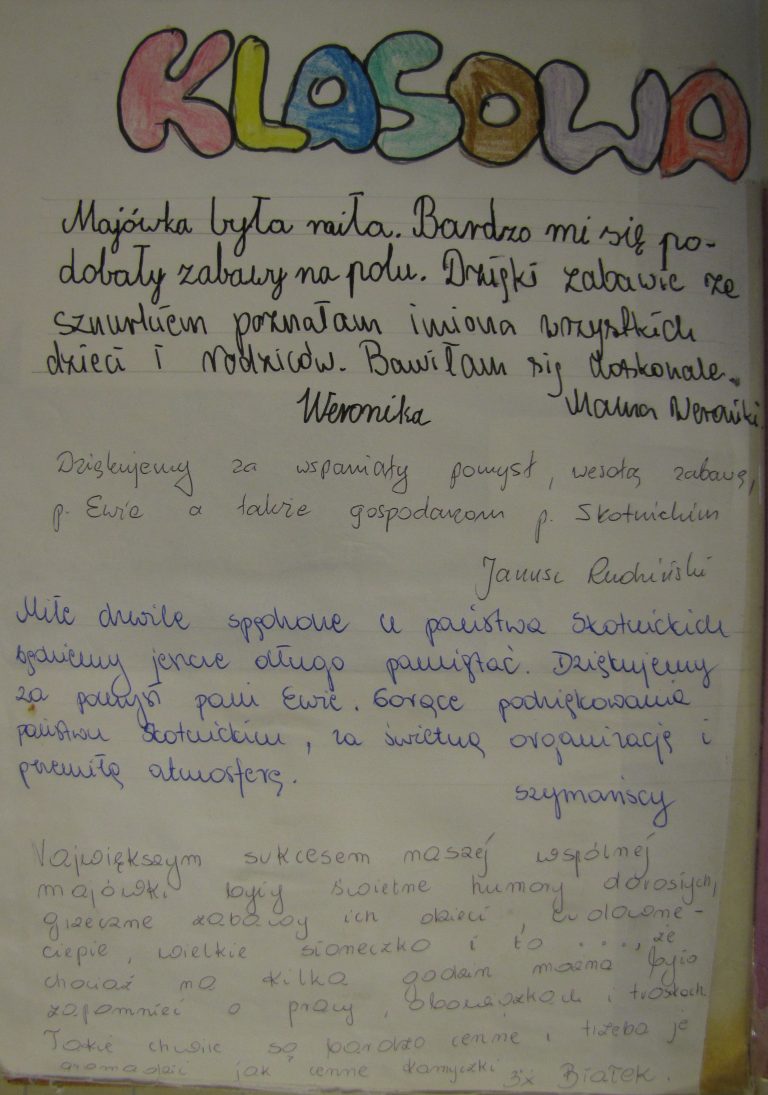 KLASOWA
Majówka była miła. Bardzo mi się po-
dobały zabawy na polu. Dzięki zabawie ze
sznurkiem poznałam imiona wszystkich
dzieci i rodziców. Bawiłam się doskonale.
Weronika Mama Weroniki
Dziękujemy za wspaniały pomysł, wesołą zabawę,
p. Ewie a także gospodarzom p. Skotnickim
Janusz Rudziński
Miłe chwile spędzone u państwa Skotnickich
będziemy jeszcze długo pamiętać. Dziękujemy
za pomysł pani Ewie. Gorące podziękowania
państwu Skotnickim, za świetną organizację i
przemiłą atmosferę.
Szymańscy
Największym sukcesem naszej wspólnej
majówki były świetne humory dorosłych,
grzeczne zabawy ich dzieci, cudowne -
ciepłe, wielkie słoneczko i to ..., że
chociaż na kilka godzin można było
zapomnieć o pracy, obowiązkach i troskach
Takie chwile są bardzo cenne i trzeba je
gromadzić jak cenne kamyczki Białek.